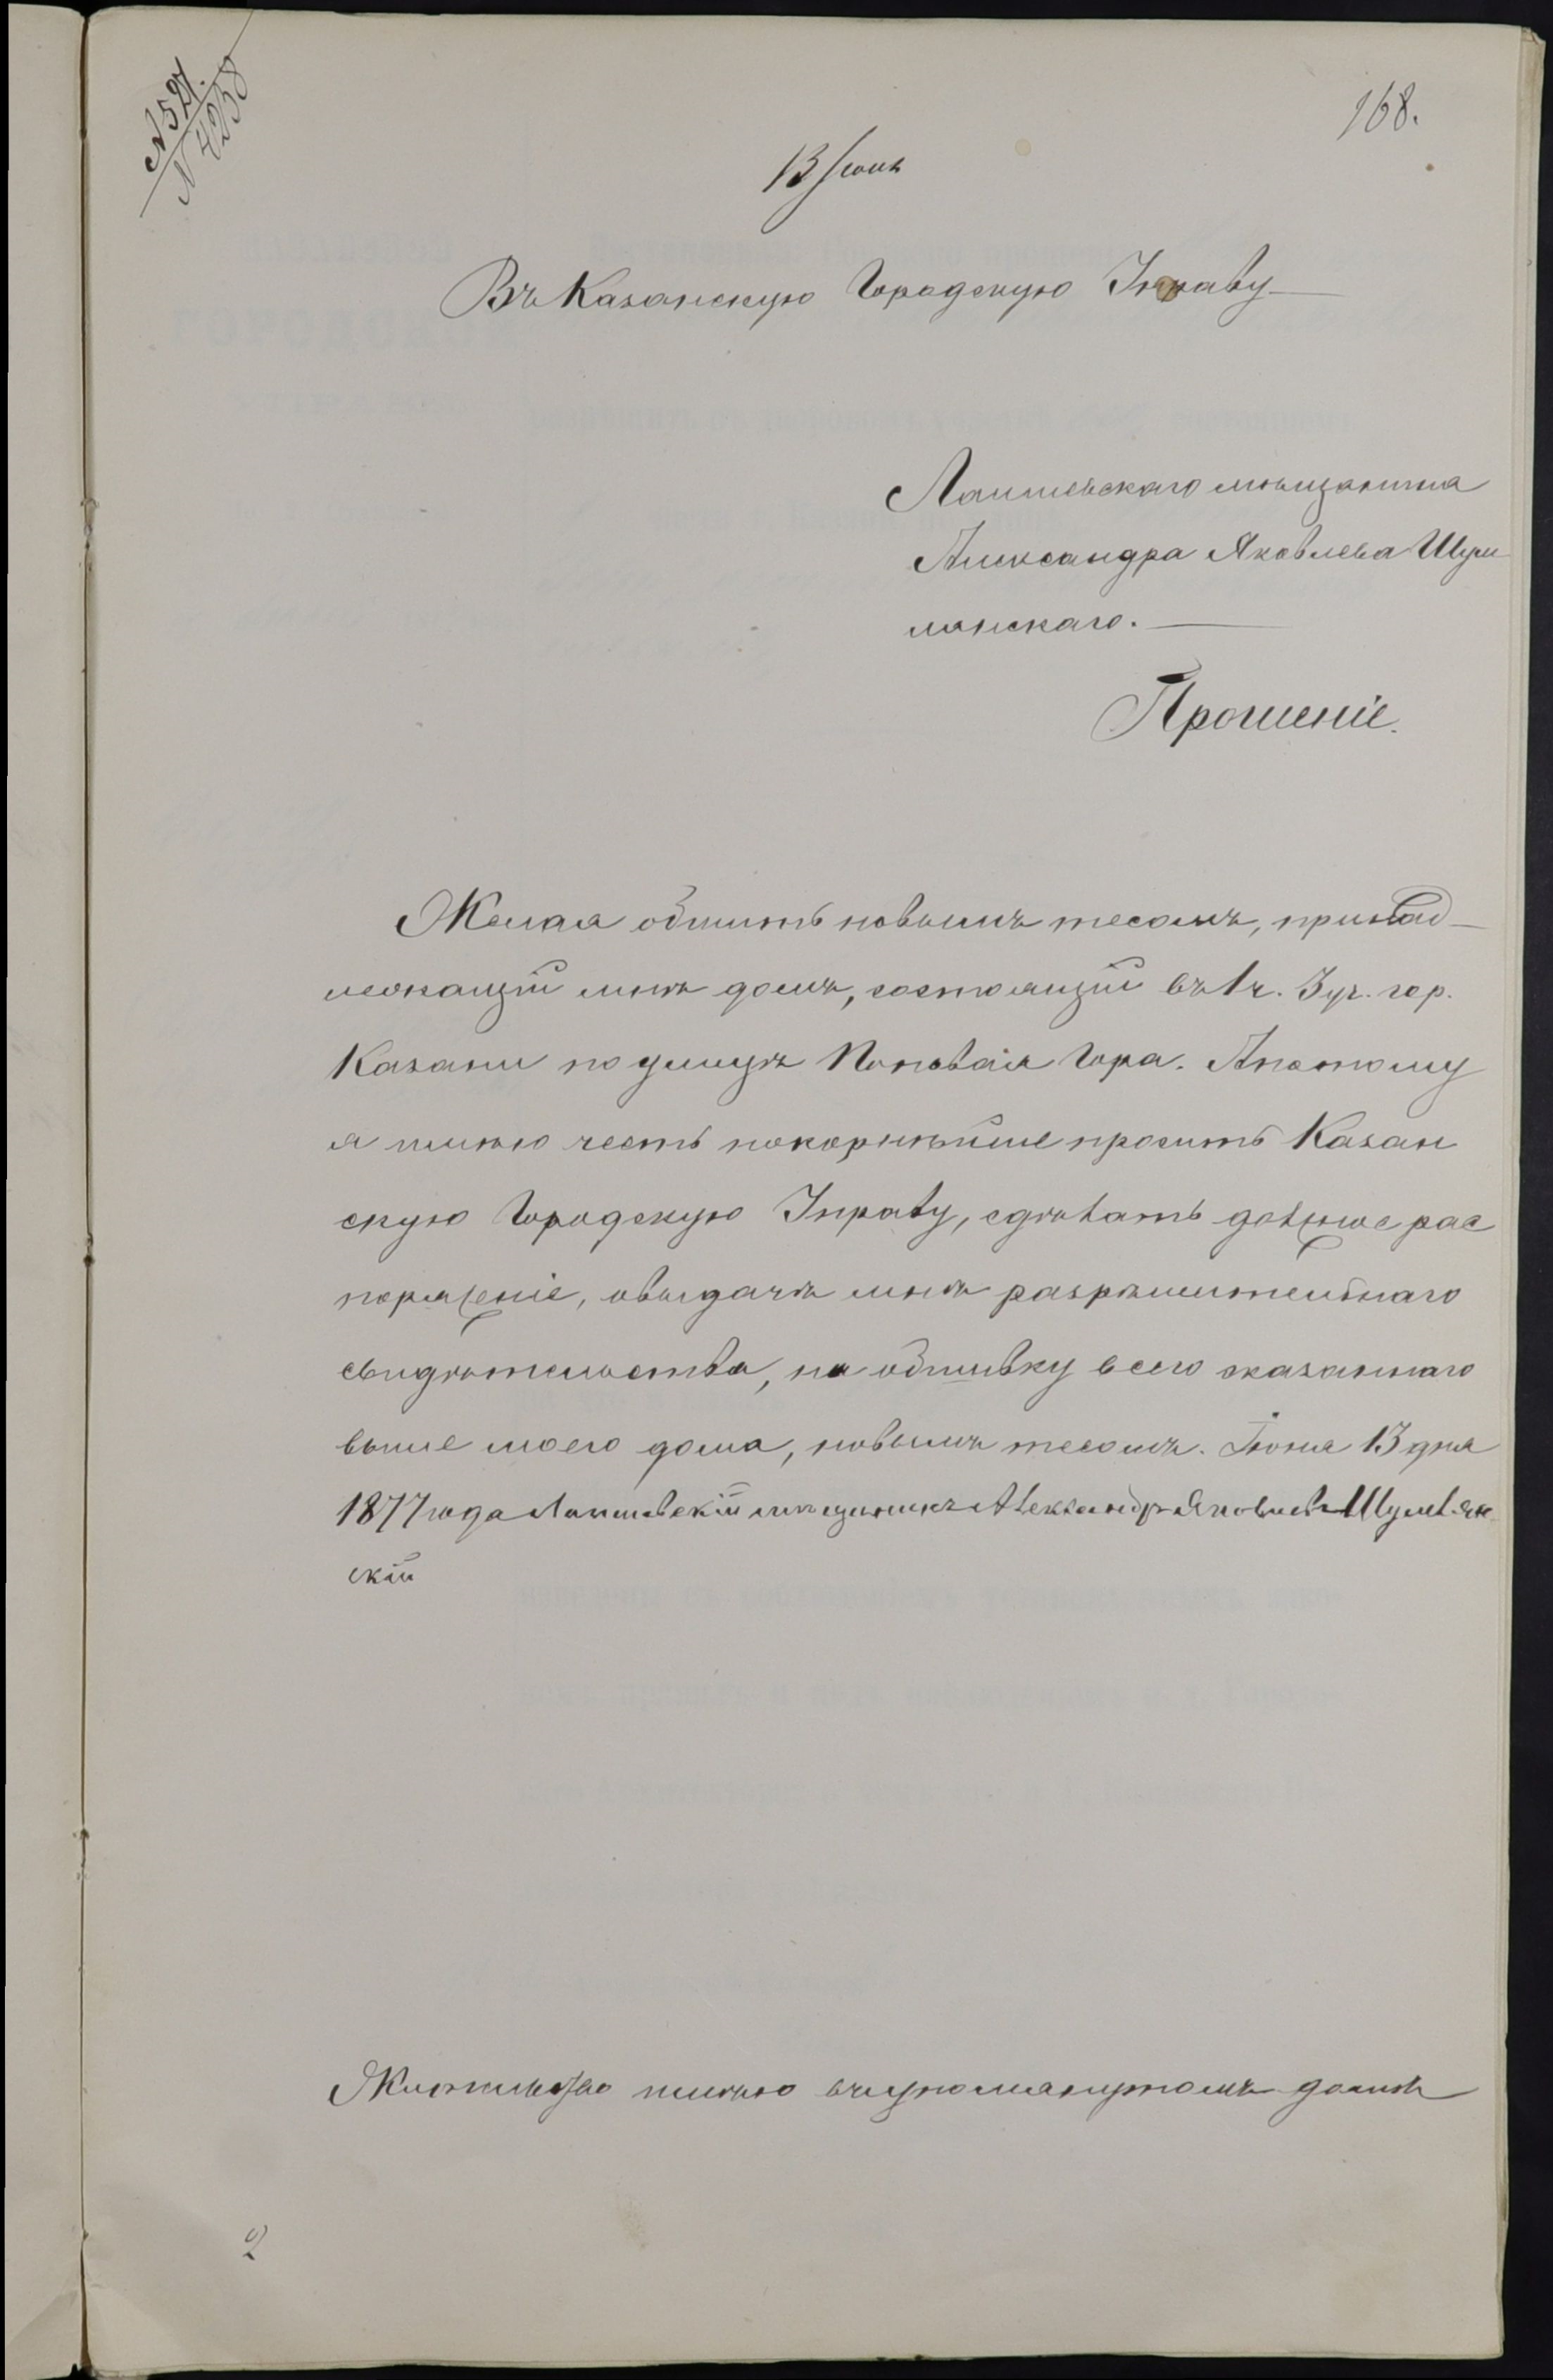 № 527.
№ 4238
168.
13 Іюня
Въ Казанскую Городскую Управу
Лаишевскаго мѣщанина
Александра Яковлева Шум
лянскаго.
Прошеніе.
Желая обшить новымъ тесомъ, принад-
лежащій мнѣ домъ, состоящій въ 1 ч. 3 уч. гор.
Казани по улицѣ Попова́я Гора. А потому
я имѣю честь покорнѣйше просить Казан
скую Городскую Управу, сдѣлать должное рас
поряженіе, о выдачѣ мнѣ разрѣшительнаго
свидѣтельства, на обшивку всего сказаннаго
выше моего дома, новымъ тесомъ. Іюня 13 дня
1877 года Лаишевскій мѣщанинъ Александръ Яковлевъ Шумлян
скій
Жительство имѣю въ упомянутомъ домѣ
2